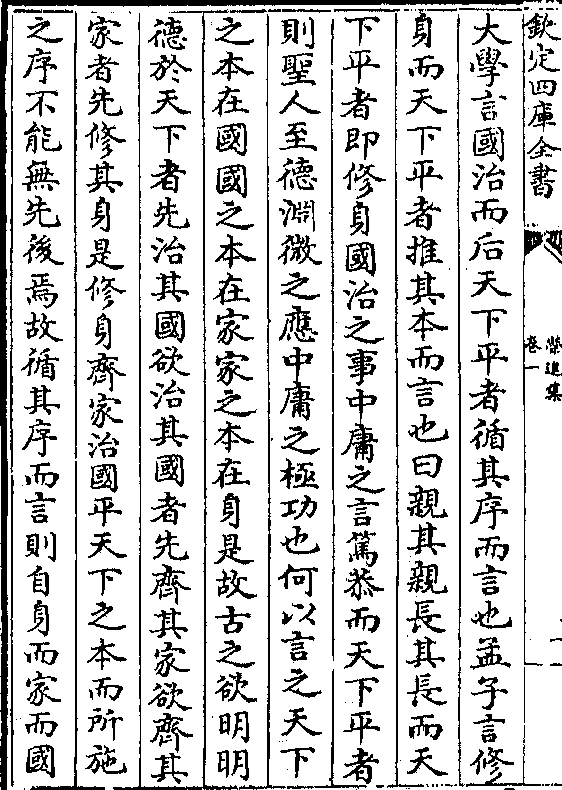 欽定四庫全書
榮進集
卷一
大學言國治而后天下平者循其序而言也孟子言修
身而天下平者推其本而言也曰親其親長其長而天
下平者即修身國治之事中庸之言篤恭而天下平者
則聖人至德淵微之應中庸之極功也何以言之天下
之本在國國之本在家家之本在身是故古之欲明明
德於天下者先治其國欲治其國者先齊其家欲齊其
家者先修其身是修身齊家治國平天下之本而所施
之序不能無先後焉故循其序而言則自身而家而國